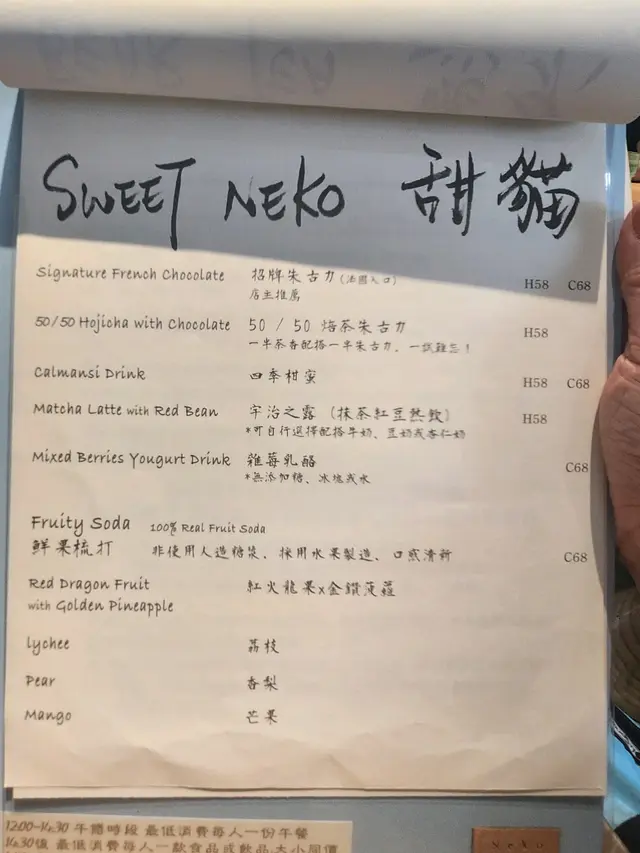 SWEET NEKO 甜貓
Signature French Chocolate 招牌朱古力 (法國入口) H58 C68
店主推薦
50/50 Hojicha with Chocolate 50 / 50 焙茶朱古力 H58
一半茶香配搭一半朱古力、一試難忘！
Calmansi Drink 四季柑蜜 H58 C68
Matcha Latte with Red Bean 宇治之露 (抹茶紅豆熱飲) H58
*可自行選擇配搭牛奶、豆奶或杏仁奶
Mixed Berries Yougurt Drink 雜莓乳酪 C68
*無添加糖、冰塊或水
Fruity Soda 100% Real Fruit Soda
鮮果梳打 非使用人造糖漿、採用水果製造、口感清新 C68
Red Dragon Fruit 紅火龍果x金鑽菠蘿
with Golden Pineapple
lychee 荔枝
Pear 香梨
Mango 芒果
12:00-14:30 午膳時段 最低消費每人一份午餐
14:30後 最低消費每人一款食品或飲品,大小同價
Neko